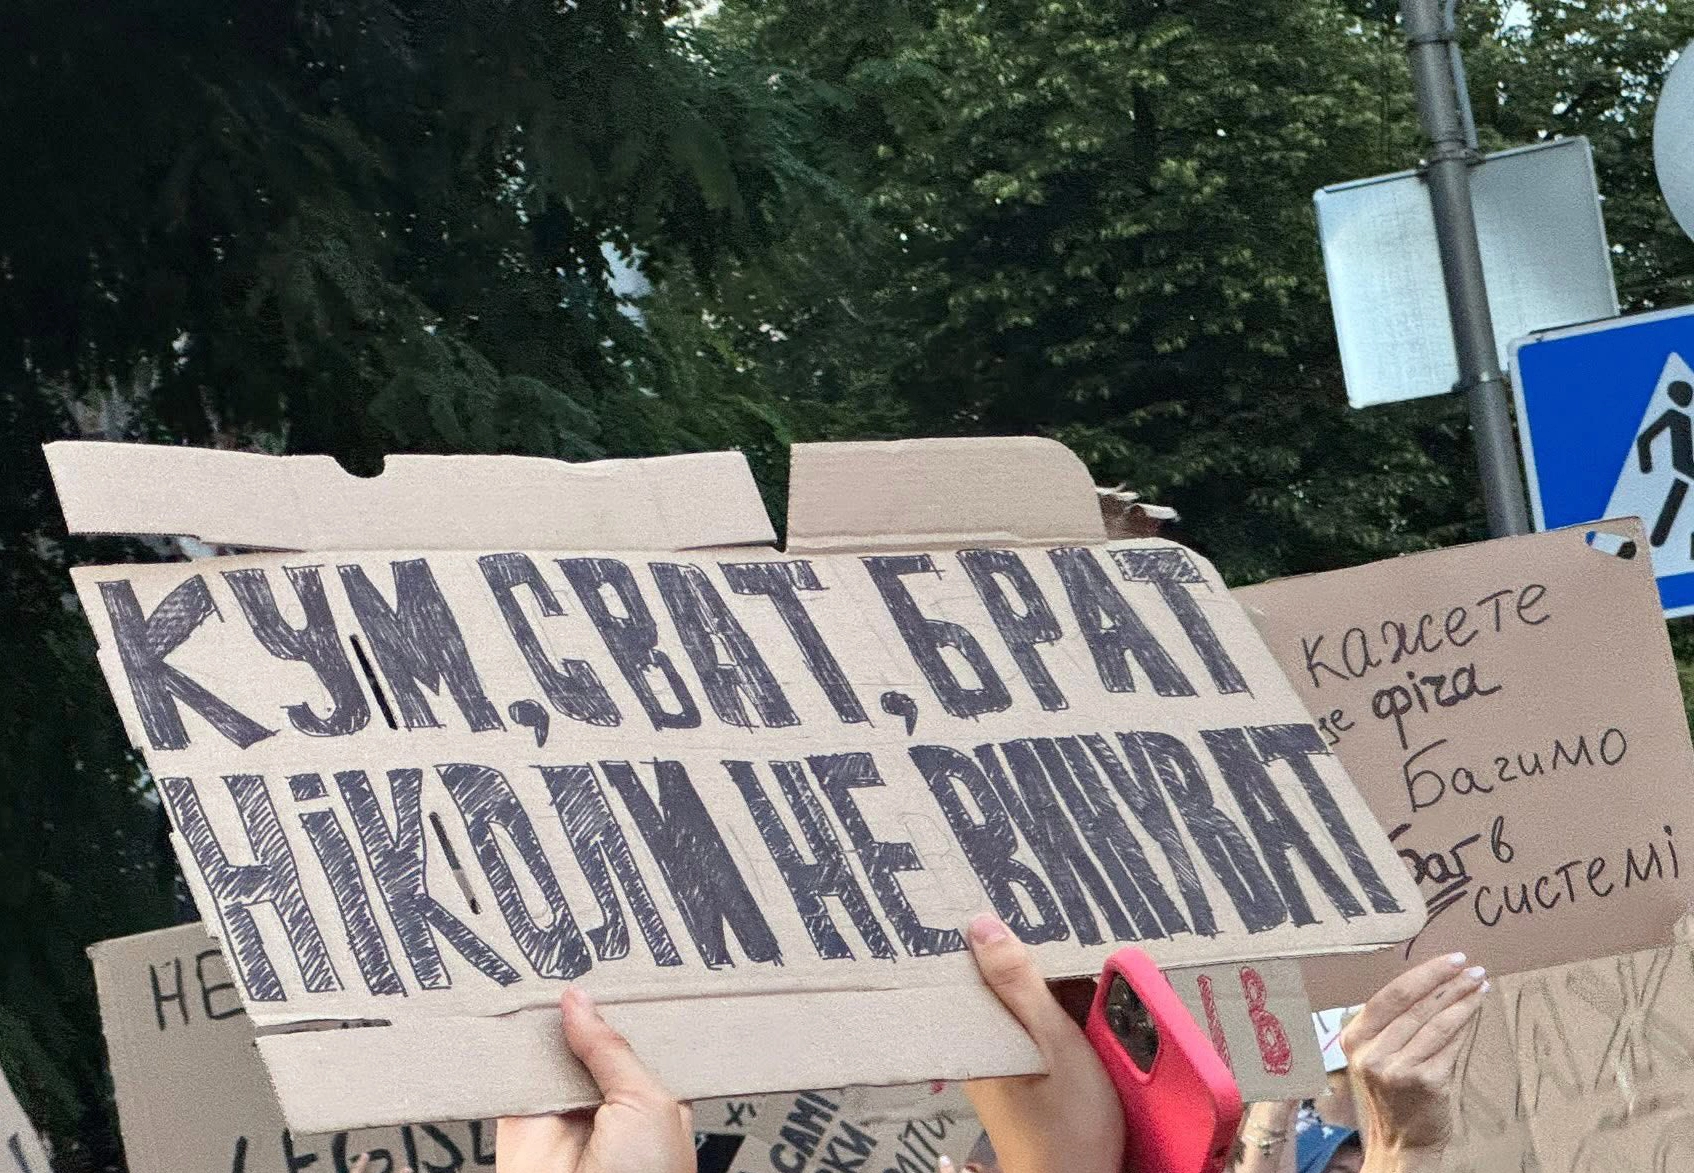 КУМ, СВАТ, БРАТ
НІКОЛИ НЕ ВИНУВАТ
Кажете
це фіча
Бачимо
баг в
системі
НЕ
САМІ